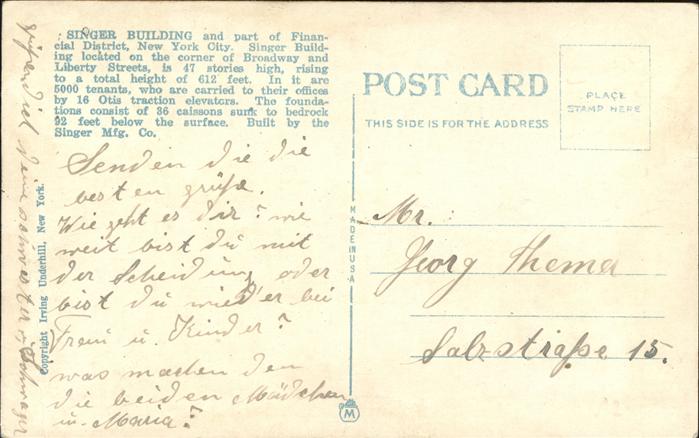 SINGER BUILDING and part of Finan-
cial District, New York City. Singer Build-
ing located on the corner of Broadway and
Liberty Streets, is 47 stories high, rising
to a total height of 612 feet. In it are
5000 tenants, who are carried to their offices
by 16 Otis traction elevators. The founda-
tions consist of 36 caissons sunk to bedrock
92 feet below the surface. Built by the
Singer Mfg. Co.
Senden die die
besten grüße.
Wie geht es dir? wie
weit bist du mit
der Scheidung oder
bist du wieder bei
Frau u. Kinder?
was machen den
die beiden Mädchen
u. Maria?
deine schwester u. Schwager
Copyright Irving Underhill, New York.
MADE IN USA
M
POST CARD
THIS SIDE IS FOR THE ADDRESS
PLACE
STAMP HERE
Mr.
Georg Themer
Salzstraße 15.